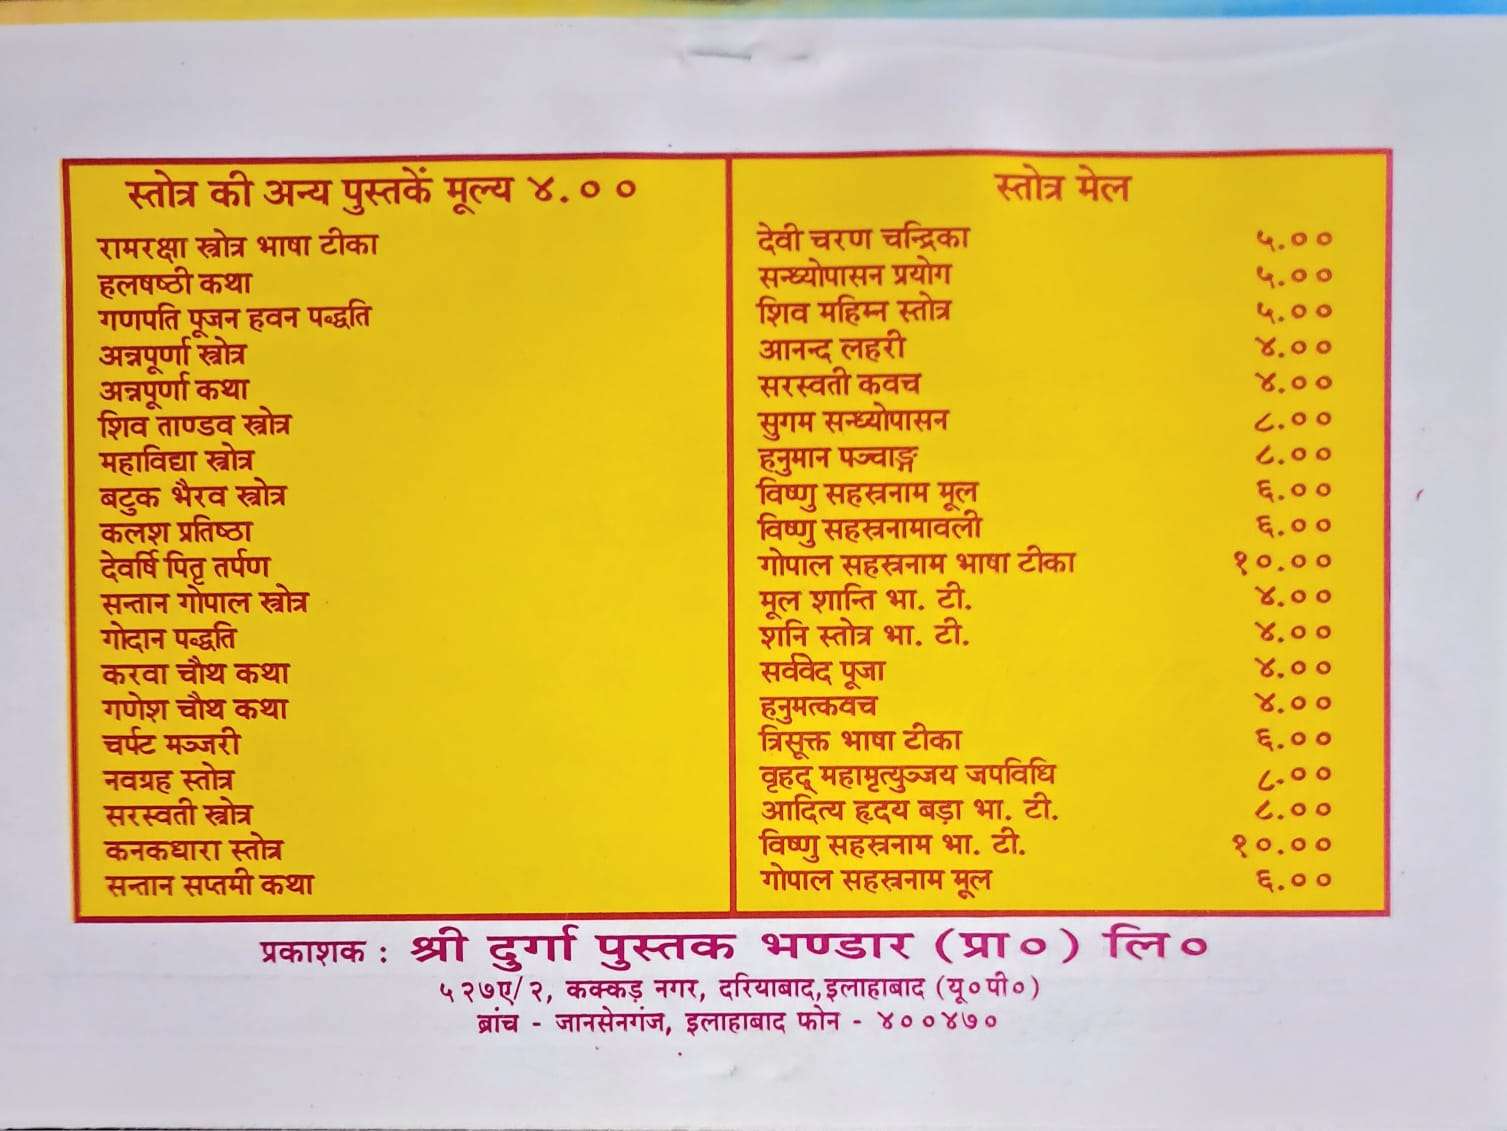 स्तोत्र की अन्य पुस्तकें मूल्य ४.००
रामरक्षा स्त्रोत्र भाषा टीका
हलषष्ठी कथा
गणपति पूजन हवन पद्धति
अन्नपूर्णा स्त्रोत्र
अन्नपूर्णा कथा
शिव ताण्डव स्त्रोत्र
महाविद्या स्त्रोत्र
बटुक भैरव स्त्रोत्र
कलश प्रतिष्ठा
देवर्षि पितृ तर्पण
सन्तान गोपाल स्त्रोत्र
गोदान पद्धति
करवा चौथ कथा
गणेश चौथ कथा
चर्पट मञ्जरी
नवग्रह स्तोत्र
सरस्वती स्त्रोत्र
कनकधारा स्तोत्र
सन्तान सप्तमी कथा
स्तोत्र मेल
देवी चरण चन्द्रिका ५.००
सन्ध्योपासन प्रयोग ५.००
शिव महिम्न स्तोत्र ५.००
आनन्द लहरी ४.००
सरस्वती कवच ४.००
सुगम सन्ध्योपासन ८.००
हनुमान पञ्चाङ्ग ८.००
विष्णु सहस्रनाम मूल ६.००
विष्णु सहस्रनामावली ६.००
गोपाल सहस्रनाम भाषा टीका १०.००
मूल शान्ति भा. टी. ४.००
शनि स्तोत्र भा. टी. ४.००
सर्ववेद पूजा ४.००
हनुमत्कवच ४.००
त्रिसूक्त भाषा टीका ६.००
वृहद् महामृत्युञ्जय जपविधि ८.००
आदित्य हृदय बड़ा भा. टी. ८.००
विष्णु सहस्रनाम भा. टी. १०.००
गोपाल सहस्रनाम मूल ६.००
प्रकाशक : श्री दुर्गा पुस्तक भण्डार (प्रा०) लि०
५२७ए/२, कक्कड़ नगर, दरियाबाद,इलाहाबाद (यू०पी०)
ब्रांच - जानसेनगंज, इलाहाबाद फोन - ४००४७०